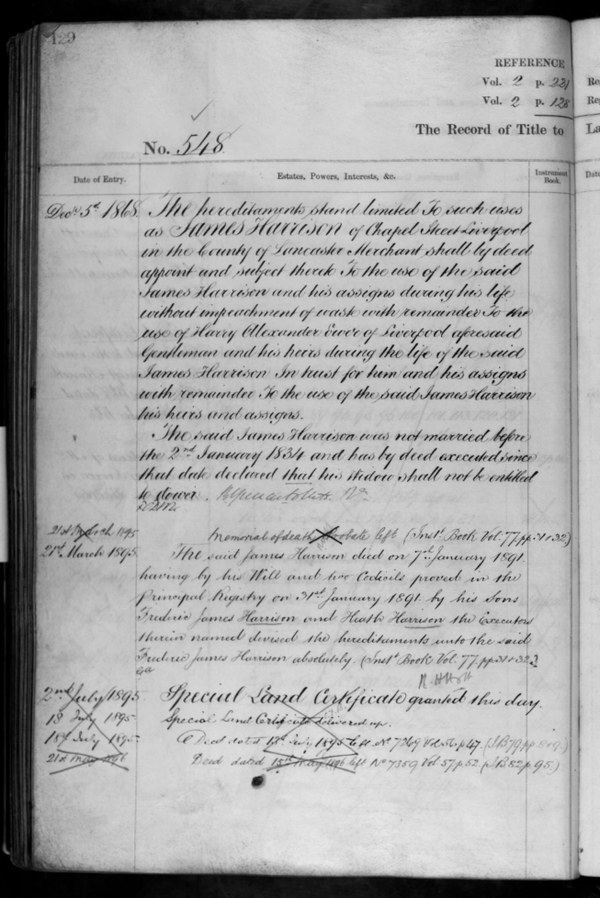 129
REFERENCE
Vol. 2 p. 221
Vol. 2 p. 128
The Record of Title to
No. 548
Date of Entry.
Estates, Powers, Interests, &c.
Instrument Book.
Decr 5th 1868.
The hereditaments stand limited To such uses
as James Harrison of Chapel Street Liverpool
in the County of Lancaster Merchant shall by deed
appoint and subject thereto To the use of the said
James Harrison and his assigns during his life
without impeachment of waste with remainder To the
use of Harry Alexander of Liverpool aforesaid
Gentleman and his heirs during the life of the said
James Harrison In trust for him and his assigns
with remainder To the use of the said James Harrison
his heirs and assigns.
The said James Harrison was not married before
the 2nd January 1834 and has by deed executed since
that date declared that his Widow shall not be entitled
to dower.
21st March 1895
Memorial of death Probate left (Inst. Book Vol. 77, pp. 31 & 32)
21st March 1895.
The said James Harrison died on 7th January 1891
having by his Will and two Codicils proved in the
Principal Registry on 31st January 1891 by his Sons
Frederic James Harrison and Heath Harrison the Executors
therein named devised the hereditaments unto the said
Frederic James Harrison absolutely (Inst. Book Vol. 77. pp. 31 & 32)
2nd July 1895
Special Land Certificate granted this day.
18 July 1895
Special Land Certificate delivered up.
18th July 1895
Deed dated 18th July 1895 left No 7269 Vol. 56 p. 47
21st May 1896
Deed dated May 1896 left No 7359 Vol. 57 p. 52 (I B 82 p. 95)